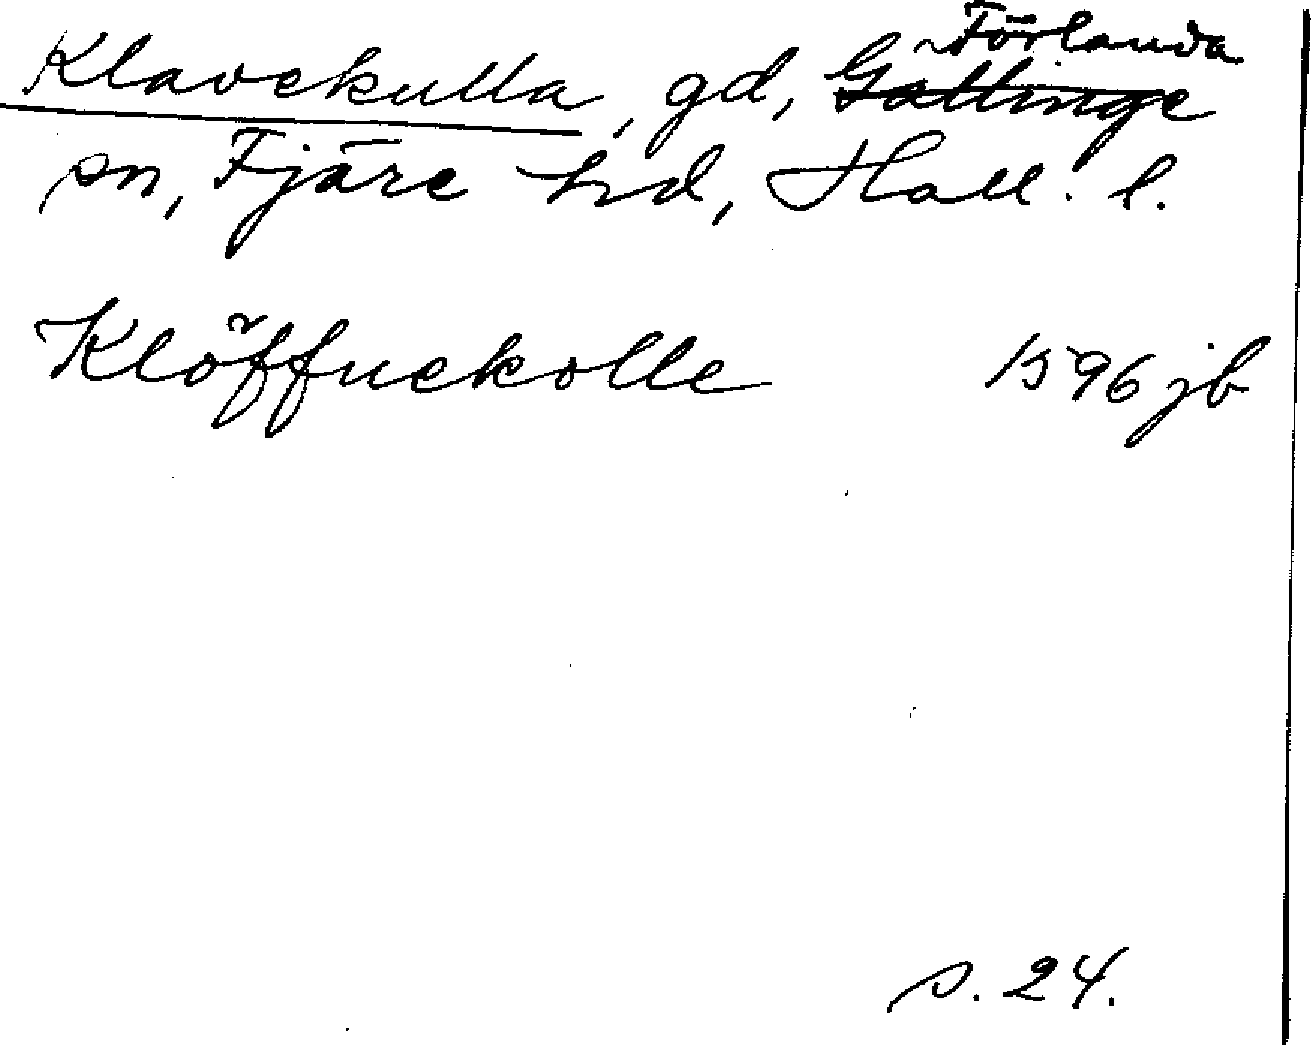 Förlanda
Klavekulla, gd, Gällinge
sn, Fjäre hd, Hall. l.
Klöffuekolle 1596 jb
s. 24.